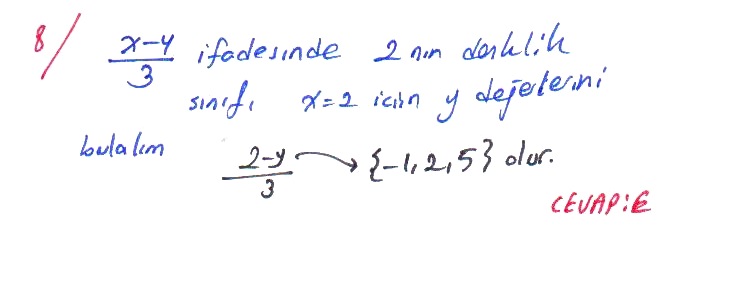 8/ x-y/3 ifadesinde 2 nin denklik
sınıfı x=2 için y değerlerini
bulalım
2-y/3 → {-1,2,5} olur.
CEVAP:E